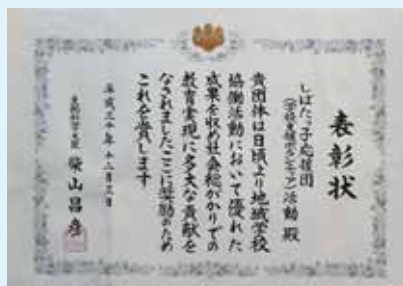 表彰状
しばたっ子応援団
(学校支援ボランティア)活動 殿
貴団体は日頃より地域学校
協働活動において優れた
成果を収め社会総がかりでの
教育実現に多大な貢献を
なされました ここに奨励のため
これを賞します
平成三十年十二月三日
文部科学大臣 柴山昌彦